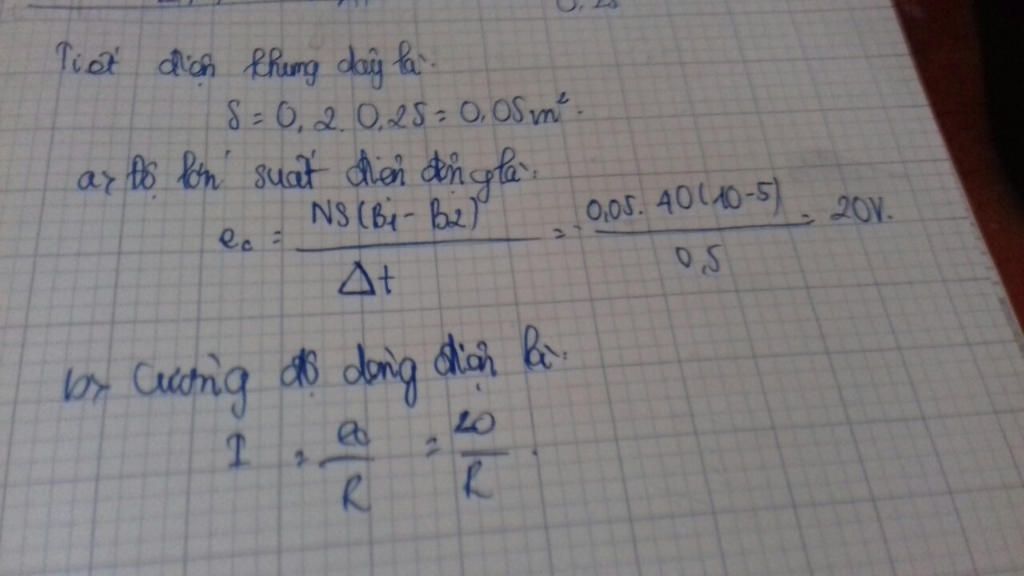 0,25
Tiết diện khung dây là:
S = 0,2.0,25 = 0,05m².
a, Độ lớn suất điện động là:
e_c = NS(B₁-B₂)/Δt = 0,05.40(10-5)/0,5 = 20V.
b, Cường độ dòng điện là:
I = e_c/R = 20/R.